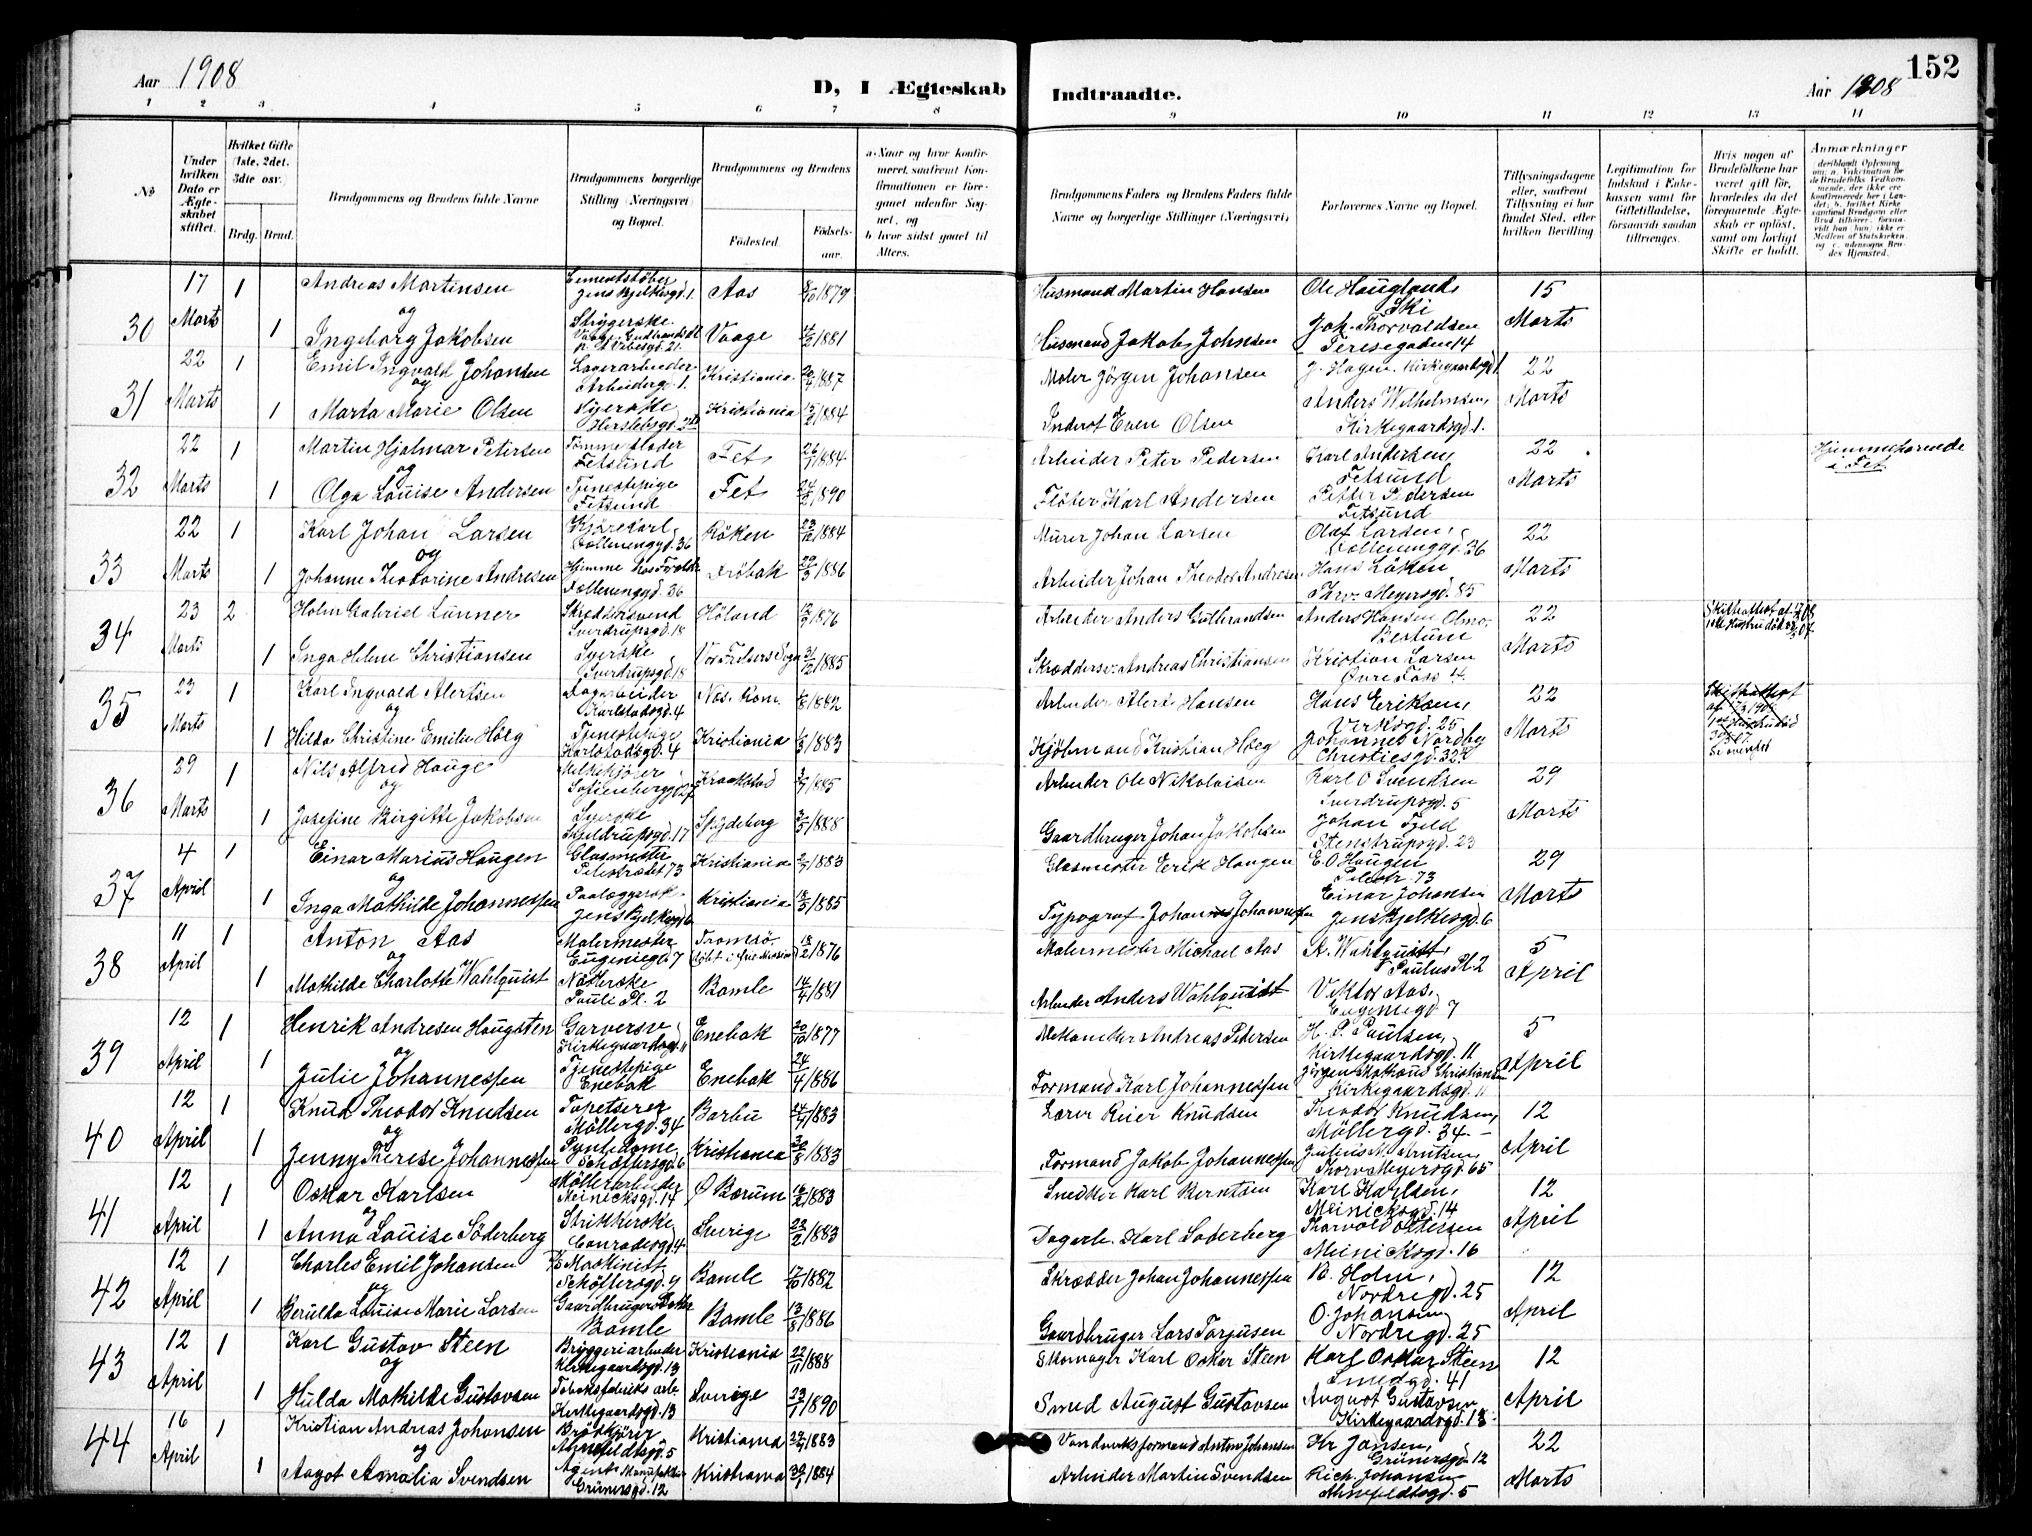 Aar 1908
D, I Ægteskab Indtraadte.
Aar 1908
152
1 2 3 4 5 6 7 8 9 10 11 12 13 14
No
Under hvilken Dato er Ægteskabet stiftet.
Hvilket Gifte (1ste, 2det, 3die osv.)
Brdg. Brud.
Brudgommens og Brudens fulde Navne
Brudgommens borgerlige Stilling (Næringsvei) og Bopæl.
Brudgommens og Brudens
Fødested.
Fødselsaar.
a. Naar og hvor konfirmeret, saafremt Konfirmationen er foregaaet udenfor Sognet, og b. hvor sidst gaaet til Alters.
Brudgommens Faders og Brudens Faders fulde Navne og borgerlige Stillinger (Næringsvei)
Forlovernes Navne og Bopæl.
Tillysningsdagene eller, saafremt Tillysning ei har fundet Sted, efter hvilken Bevilling
Legitimation for Indskud i Enkekassen samt for Giftetilladelse, forsaavidt saadan tiltrænges.
Hvis nogen af Brudefolkene har været gift før, hvorledes da det foregaaende Ægteskab er opløst, samt om lovligt Skifte er holdt.
Anmærkninger
30 17 Marts 1 Andreas Martinsen Cementstøber Jens Bjelkesgd. 1. Aas 1879 Husmand Martin Hansen Ole Hauglands Ski 15 Marts
og
1 Ingeborg Jakobsen Strygerske Vaage 1881 Husmand Jakob Johnsen Joh. Thorvaldsen Teresegaden 14
31 22 Marts 1 Emil Ingvald Johansen Lagerarbeider Arbeidergd. 1. Kristiania 1887 Maler Jörgen Johansen J. Hagen. Kirkegaardsgd 1 22 Marts
og
1 Marta Marie Olsen Syerske Herslebsgd. Kristiania 1884 Even Olsen Anders Wilhelmsen, Kirkegaardsgd 1.
32 22 Marts 1 Martin Hjalmar Petersen Fetsund Fet 26/7 1884 Arbeider Peter Pedersen Karl Andersen, Fetsund 22 Marts Hjemmehørende i Fet
og
1 Olga Louise Andersen Tjenestepige Fetsund Fet 1890 Fløter Karl Andersen Petter Pedersen Fetsund
33 22 Marts 1 Karl Johan Larsen Kjørekarl Fælleneng​gd. 36 Röken 1884 Murer Johan Larsen Olaf Larsen, 36 22 Marts
og
1 Johanne Theodorine Andresen Hjemme hos Forældre 36 Dröbak 1886 Arbeider Johan Theodor Andresen Hans Löken Thv. Meyersgd. 85
34 23 Marts 2 Holm Gabriel Lunner Skrædersvend Sverdrupsgd. 18 Höland 1876 Arbeider Anders Gulbrandsen Anders Hansen Bestum 22 Marts
1 Inga Helene Christiansen Syerske Sverdrupsgd. 18 Vor Frelsers Sogn 31/12 1885 Skræddersv. Andreas Christiansen Kristian Larsen Övre Foss 4.
35 23 Marts 1 Karl Ingvald Alertsen Dagarbeider Karlstadsgd. 4 Næs. Rom. 1882 Arbeider Alert Hansen Hans Eriksen, Verksgd. 25 22 Marts
og
1 Hilda Christine Emilie Höeg Tjenestepige Karlstadsgd. 4 Kristiania 1883 Kjöbmand Kristian Höeg Johannes Nordby Christiesgd. 32
36 29 Marts 1 Nils Alfred Hauge Melkekjører Sofienberggd. 27 Kraakstad 1885 Arbeider Ole Nikolaisen Karl O Svendsen Sverdrupsgd. 5 29 Marts
og
1 Josefine Birgitte Jakobsen Syerske 17 Spydeberg 1888 Gaardbruger Johan Jakobsen Johan Fjeld Stenstrupsgd. 23
37 4 April 1 Einar Marius Haugen Glasmester Pilestrædet 73 Kristiania 1883 Glasmester Erik Haugen E. O Haugen Pilestr. 73 29 Marts
og
1 Inga Mathilde Johannessen Paalæggersk. Jens Bjelkesgd 6 Kristiania 1885 Typograf Johan Johannessen Einar Johansen Jens Bjelkesgd. 6
38 11 April 1 Anton Aas Malermester Eugeniegd. 7 Tromsö 1876 Malermester Michael Aas A. Wahlquist, Paulus Pl. 2 5 April
og
1 Mathilde Charlotte Wahlquist Nätterske Pauli Pl. 2 Bamle 14/4 1881 Arbeider Anders Wahlquist Viktor Aas, Eugeniegd 7
39 12 April 1 Henrik Andresen Haugsten Garversv. Kirkegaardsgd. 11 Enebak 20/10 1877 Mekaniker Andreas Pedersen H. P. Paulsen, Kirkegaardsgd. 11 5 April
og
1 Julie Johannessen Tjenestepige Enebak Enebak 24/4 1886 Formand Karl Johannessen Jörgen Christiansen Kirkegaardsgd. 11
40 12 April 1 Knud Theodor Knudsen Tapetserer Möllergd. 34 Barbu 1883 Lærer Reier Knudsen Theodor Knudsen, Möllergd. 34. - 12 April
og
1 Jenny Therese Johannessen Pyntedame Schøttersgd. 6 Kristiania 30/8 1883 Formand Jakob Johannessen Julius M. Knutzen, Thorv Meyersgd. 65
41 12 April 1 Oskar Karlsen Möllerarbeider Meinicksgd. 14 Ö Bærum 16/2 1883 Snedker Karl Berntsen Karl Karlsen, Meinicksgd. 14 12 April
og
1 Anna Louise Söderberg Strikkerske Conradisgd. 4. Sverige 23/2 1883 Dagarb. Karl Söderberg Tharvald Meinicksgd. 16
42 12 April 1 Charles Emil Johansen Maskinist Schøttersgd. 9 Bamle 17/10 1882 Skrædder Johan Johannessen B. Holm, Nordregd. 25 12 April
og
1 Berulda Louise Marie Larsen Gaardbruger Datter Bamle Bamle 13/8 1886 Gaardbruger Lars Tarjusen O. Johansen Nordregd. 25
43 12 April 1 Karl Gustav Steen Bryggeriarbeider Kirkegaardsgd. 13 Kristiania 22/11 1888 Skomager Karl Oskar Steen Karl Oskar Steen Smedgd. 41 12 April
og
1 Hulda Mathilde Gustavsen Tobaksfabriks arb. Kirkegaardsgd. 13 Sverige 23/1 1890 Smed August Gustavsen August Gustavsen Kirkegaardsgd. 13
44 16 April 1 Kristian Andreas Johansen Brødkjører Ahnefeldtsgd. 5 Kristiania 1883 Vandverksformand Anton Johansen Kr Jansen, Grünersgd. 12 22 Marts
og
1 Aagot Amalia Svendsen Agent Manufaktur Grünersgd. 12 Kristiania 1884 Arbeider Martin Svendsen Rich. Johansen Ahnefeldtsgd. 5